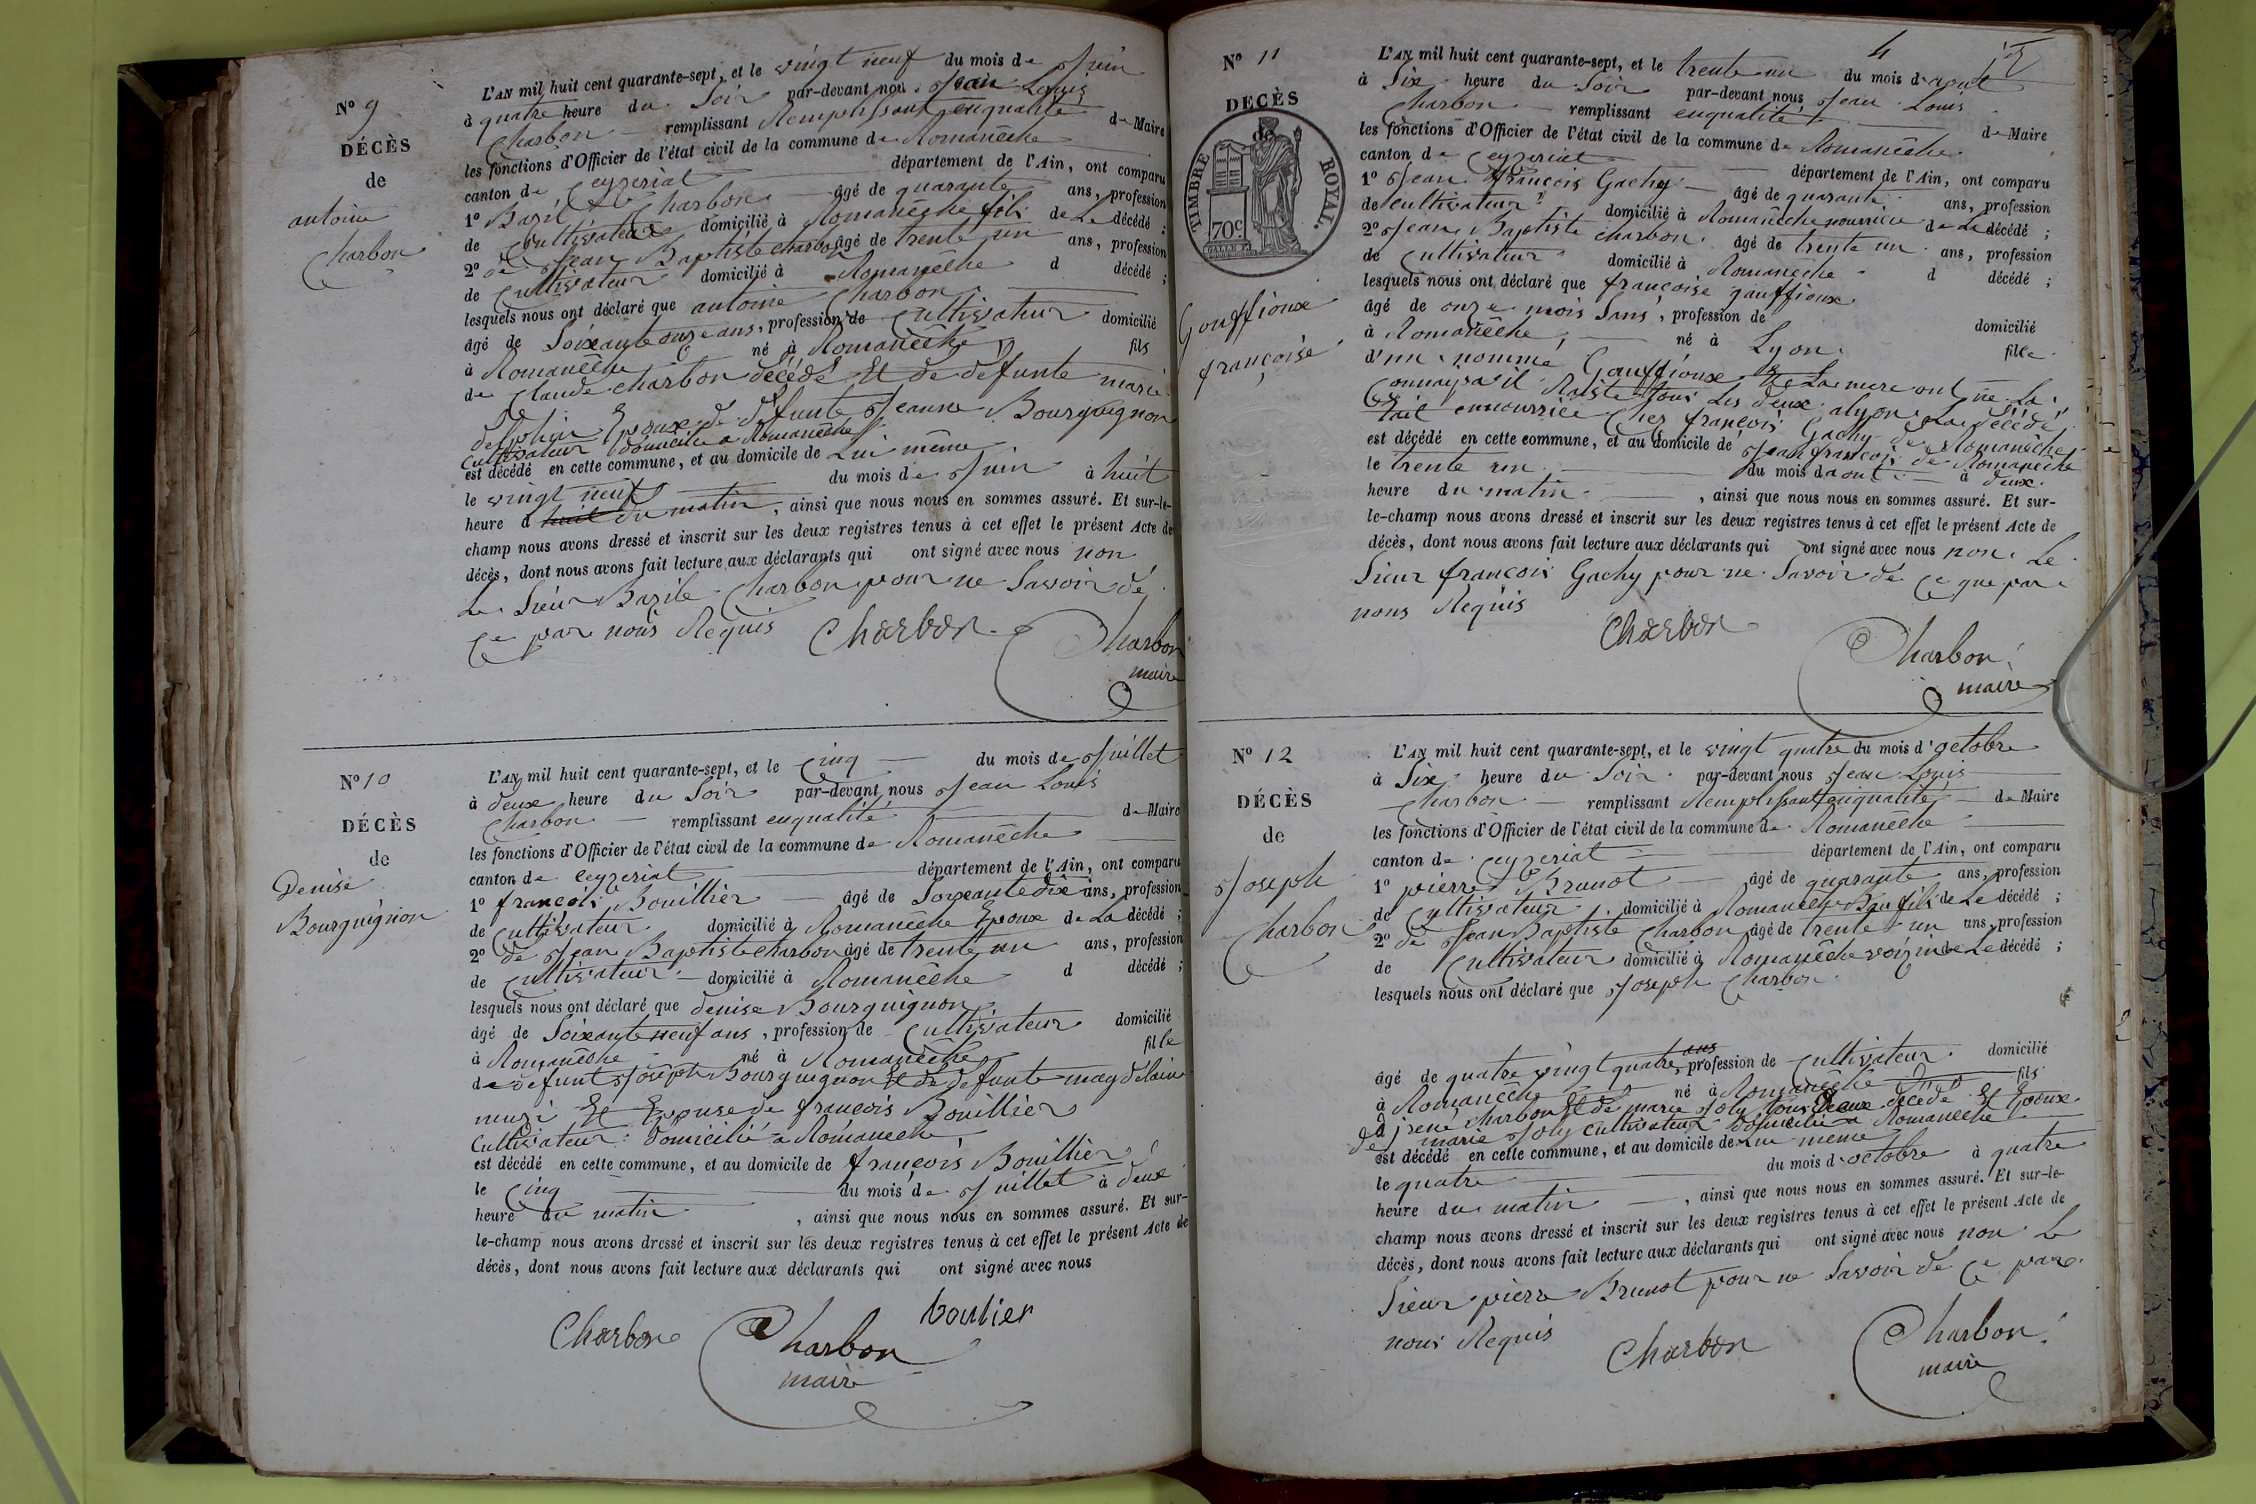 N° 9
DÉCÈS
de
antoine
Charbon
L'AN mil huit cent quarante-sept, et le vingt neuf du mois de Juin
à quatre heure du Soir par-devant nous Jean Louis
Charbon remplissant Remplissant enqualité de Maire
les fonctions d'Officier de l'état civil de la commune de Romanêche
canton de Ceyzeriat département de l'Ain, ont comparu
1° Bazil Charbon âgé de quarante ans, profession
de Cultivateur domicilié à Romanêche fils de Le décédé ;
2° de Jean Baptiste charbon âgé de trente un ans, profession
de Cultivateur domicilié à Romanêche d décédé ;
lesquels nous ont déclaré que antoine Charbon
âgé de Soixante onze ans, profession de Cultivateur domicilié
à Romanêche né à Romanêche fils
de Claude charbon décédé Et de défunte marie
delphin Epoux de défunte Jeanne Bourguignon
Cultivateur domicilié a Romanêche
est décédé en cette commune, et au domicile de Lui même
le vingt neuf du mois de Juin à huit
heure d du matin, ainsi que nous nous en sommes assuré. Et sur-le-
champ nous avons dressé et inscrit sur les deux registres tenus à cet effet le présent Acte de
décès, dont nous avons fait lecture aux déclarants qui ont signé avec nous non
Le Sieur Bazile Charbon pour ne Savoir de
Ce par nous Requis Charbon Charbon
maire
N° 10
DÉCÈS
de
Denise
Bourguignon
L'AN mil huit cent quarante-sept, et le Cinq du mois de Juillet
à deux heure du Soir par-devant nous Jean Louis
Charbon remplissant enqualité de Maire
les fonctions d'Officier de l'état civil de la commune de Romanêche
canton de ceyzeriat département de l'Ain, ont comparu
1° françois Bouillier âgé de Soixante dix ans, profession
de Cultivateur domicilié à Romanêche Epoux de La décédé ;
2° de Jean Baptiste charbon âgé de trente un ans, profession
de Cultivateur domicilié à Romanêche d décédé ;
lesquels nous ont déclaré que denise Bourguignon
âgé de Soixante neuf ans, profession de Cultivateur domicilié
à Romanêche né à Romanêche fille
de defunt Joseph Bourguignon Et de defunte magdelaine
muzi Et Epouse de françois Bouillier
Cultivateur Domicilié a Romanêche
est décédé en cette commune, et au domicile de françois Bouillier
le Cinq du mois de Juillet à deux
heure du matin, ainsi que nous nous en sommes assuré. Et sur-
le-champ nous avons dressé et inscrit sur les deux registres tenus à cet effet le présent Acte de
décès, dont nous avons fait lecture aux déclarants qui ont signé avec nous
Charbon Charbon boulier
maire
4
N° 11
DECÈS
de
TIMBRE ROYAL.
70c
Gouffioux
françoise
L'AN mil huit cent quarante-sept, et le trente un du mois d'août
à Six heure du Soir par-devant nous Jean Louis
Charbon remplissant enqualité de Maire
les fonctions d'Officier de l'état civil de la commune de Romanêche
canton de Ceyzeriat département de l'Ain, ont comparu
1° Jean françois Gachy âgé de quarante ans, profession
de Cultivateur domicilié à Romanêche nourricier de Le décédé ;
2° Jean Baptiste charbon âgé de trente un ans, profession
de Cultivateur domicilié à Romanêche d décédé ;
lesquels nous ont déclaré que françoise gauffioux
âgé de onze mois Sans, profession de domicilié
à Romanêche, né à Lyon fille
d'un nommé Gauffioux La mere ont ne La
Connaissait tous Les deux alyon La décédé
était ennourrice Chez françois Gachy de Romanêche
est décédé en cette commune, et au domicile de Jean françois de Romanêche
le trente un du mois d'aout à deux
heure du matin, ainsi que nous nous en sommes assuré. Et sur-
le-champ nous avons dressé et inscrit sur les deux registres tenus à cet effet le présent Acte de
décès, dont nous avons fait lecture aux déclarants qui ont signé avec nous non Le
Sieur françois Gachy pour ne Savoir de Ce que par
nous Requis Charbon Charbon
maire
N° 12
DÉCÈS
de
Joseph
Charbon
L'AN mil huit cent quarante-sept, et le vingt quatre du mois d'octobre
à Six heure du Soir par-devant nous Jean Louis
Charbon remplissant Remplissant enqualité de Maire
les fonctions d'Officier de l'état civil de la commune de Romanêche
canton de Ceyzeriat département de l'Ain, ont comparu
1° pierre Brunot âgé de quarante ans, profession
de Cultivateur domicilié à Romanêche Baufils de Le décédé ;
2° de Jean Baptiste Charbon âgé de trente un ans, profession
de Cultivateur domicilié à Romanêche voizin de Le décédé ;
lesquels nous ont déclaré que Joseph Charbon
âgé de quatre vingt quatre ans, profession de Cultivateur domicilié
à Romanêche né à Romanêche fils
d irené charbon Et de marie Joly tous Deux décédé Et Epoux
de marie Joly Cultivateur Domicilié a Romanêche
est décédé en cette commune, et au domicile de Lui même
le quatre du mois d'octobre à quatre
heure du matin, ainsi que nous nous en sommes assuré. Et sur-le-
champ nous avons dressé et inscrit sur les deux registres tenus à cet effet le présent Acte de
décès, dont nous avons fait lecture aux déclarants qui ont signé avec nous non Le
Sieur pierre Brunot pour ne Savoir de Ce par
nous Requis Charbon Charbon
maire